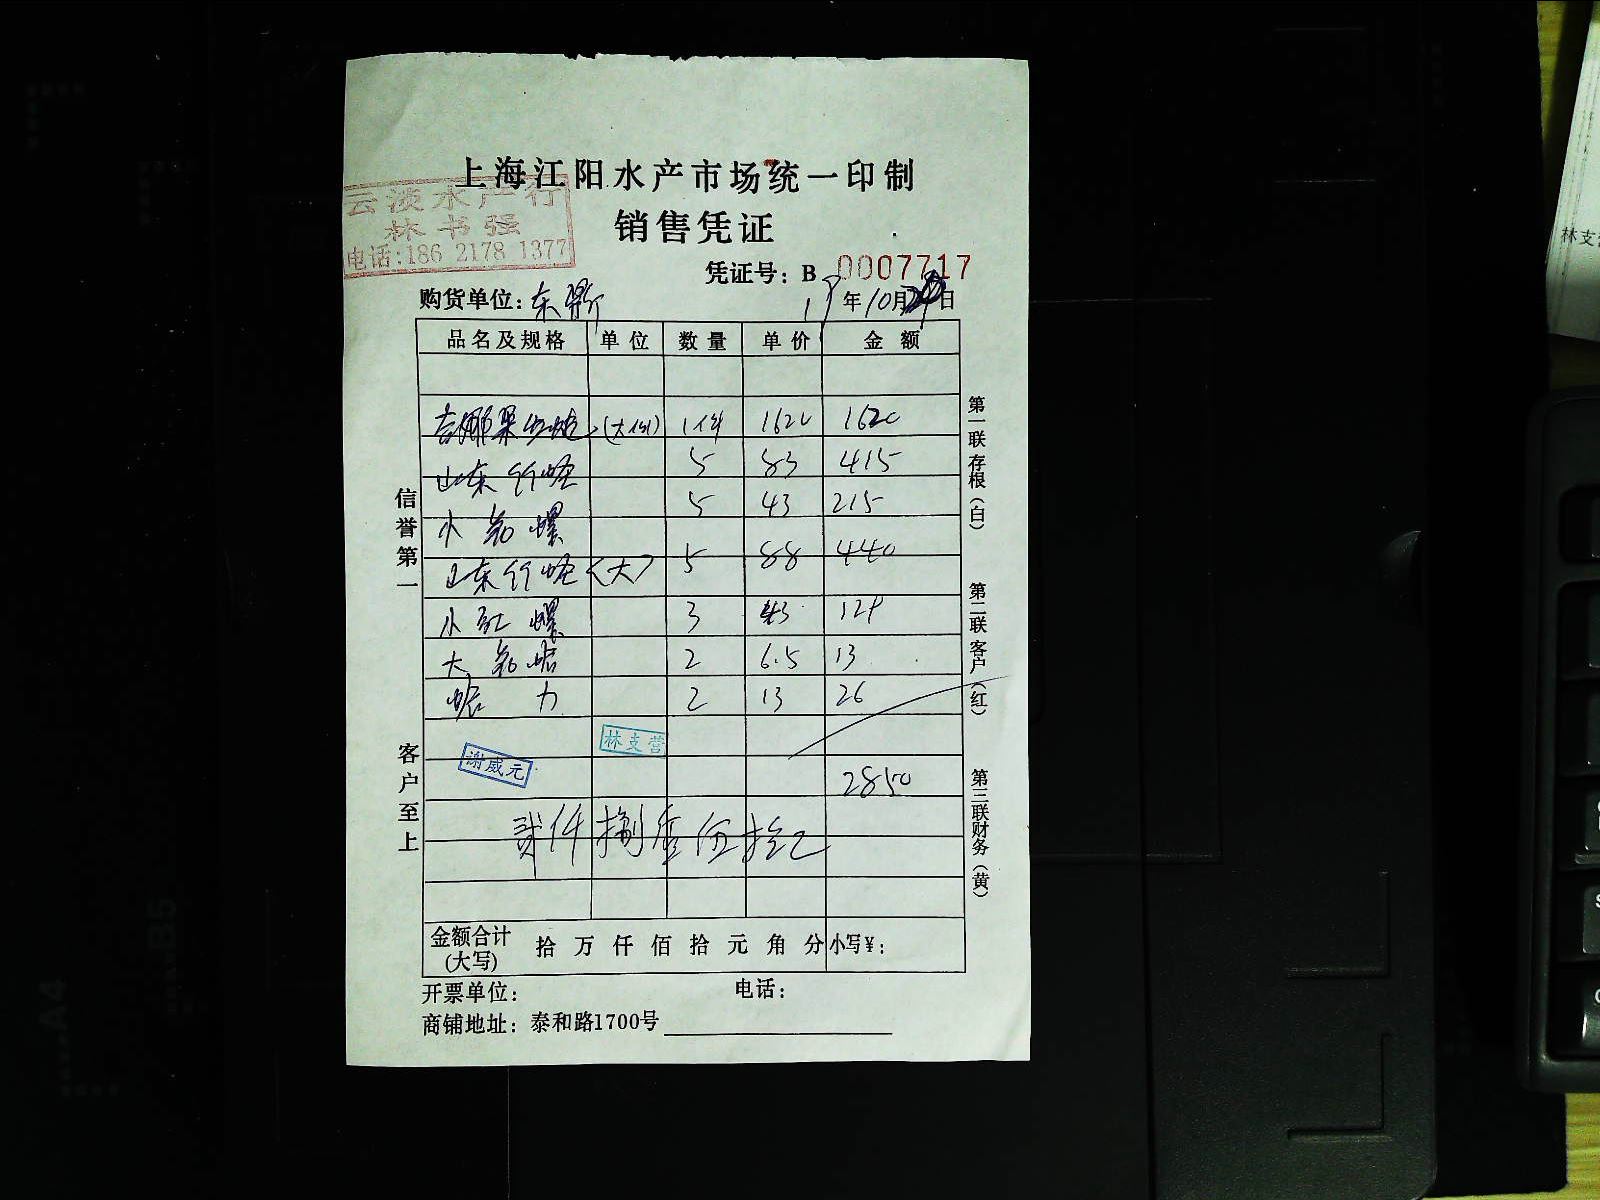 上海江阳水产市场统一印制
云淡水产行
林书强
电话:186 2178 1377
销售凭证
凭证号：B 0007717
购货单位：东
19年10月 日
品名及规格 单位 数量 单价 金额
(大 1件 1620 1620
山东 5 83 415
小 螺 5 43 215
山东 (大) 5 88 440
小红螺 3 43 129
大 2 6.5 13
力 2 13 26
林支营
谢威元
2850
贰仟捌 伍拾
金额合计(大写) 拾 万 仟 佰 拾 元 角 分 小写¥：
开票单位： 电话：
商铺地址：泰和路1700号
信誉第一
客户至上
第一联存根（白）
第二联客户（红）
第三联财务（黄）
林支
A4
B5